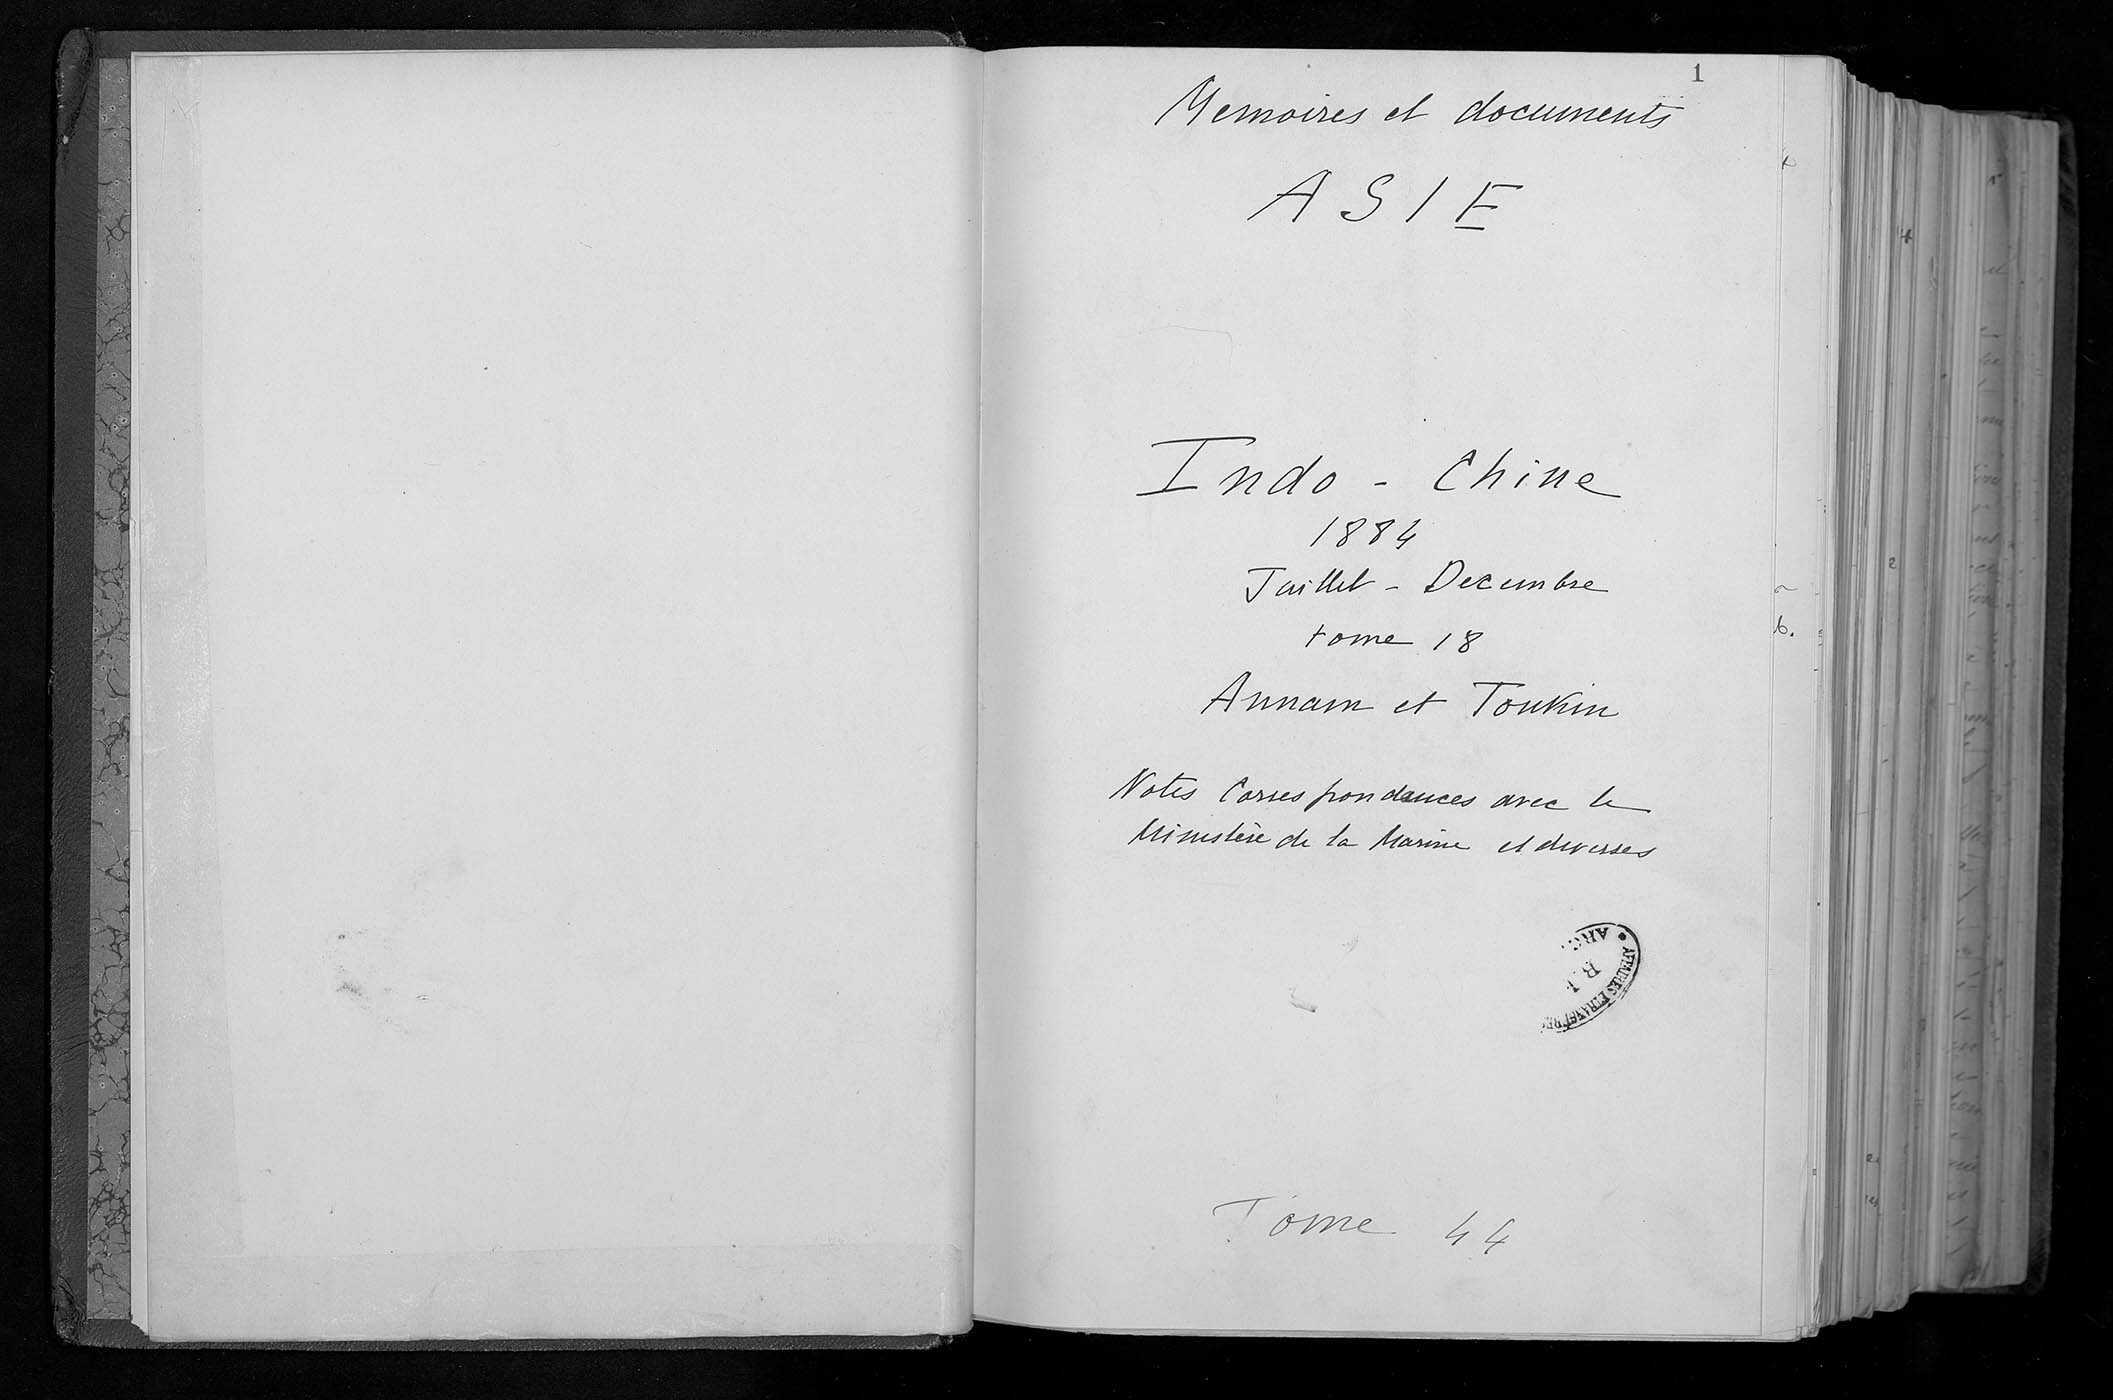 1
Memoires et documents
ASIE
Indo - Chine
1884
Juillet - Decembre
tome 18
Annam et Tonkin
Notes Correspondances avec le
Ministère de la Marine et diverses
AFFAIRES ETRANGERES
Tome 44